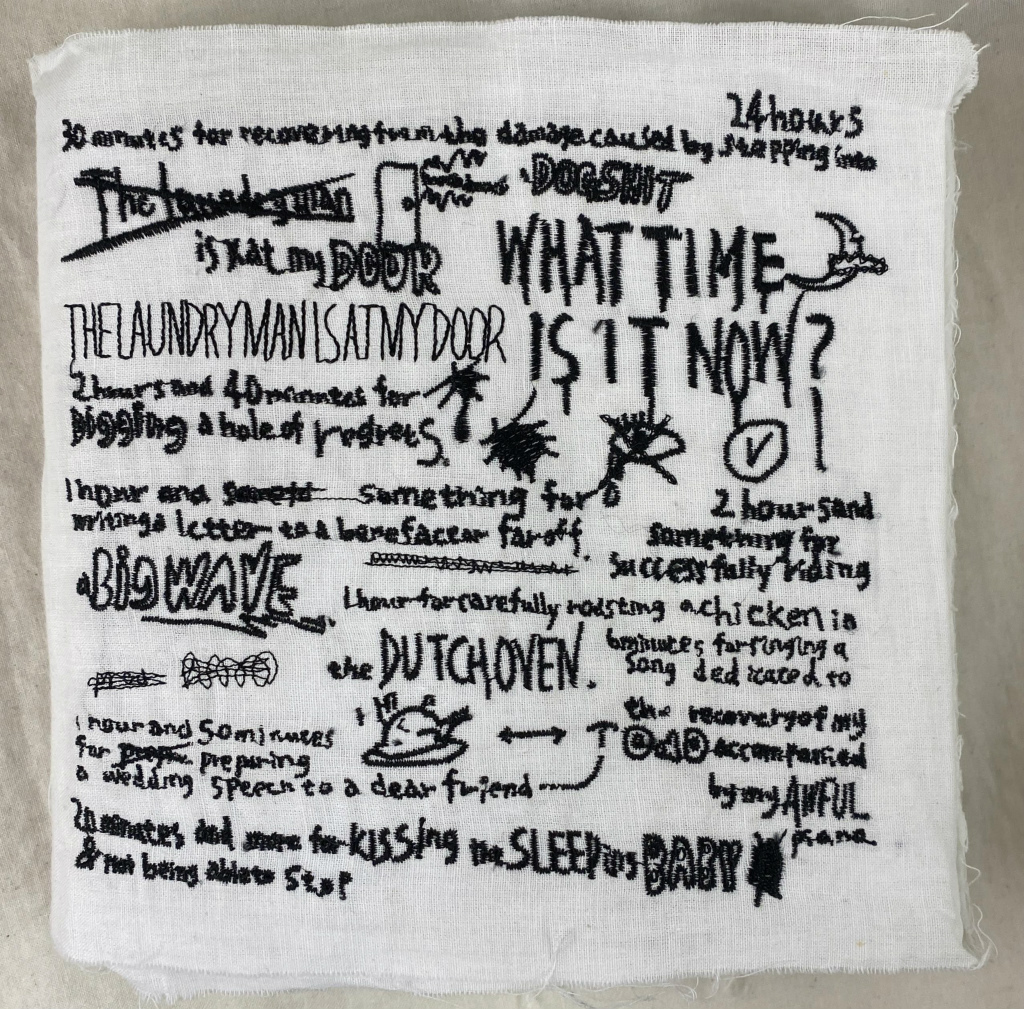 24 hours
30 minutes for recovering from the damage caused by stepping into
The laundryman
DOGSHIT
is at my DOOR
WHAT TIME
IS IT NOW?
THE LAUNDRY MAN IS AT MY DOOR
2 hours and 40 minutes for
Digging a hole of regrets.
1 hour and something for
writing a letter to a benefactor far off.
2 hours and
something for
successfully riding
a Big WAVE
1 hour for carefully roasting a chicken in
the DUTCH OVEN.
6 minutes for singing a
song dedicated to
the recovery of my
DAD accompanied
by my AWFUL
piano
1 hour and 50 minutes
for preparing
a wedding speech to a dear friend
20 minutes and more for KISSING the SLEEPing BABY
& not being able to Stop